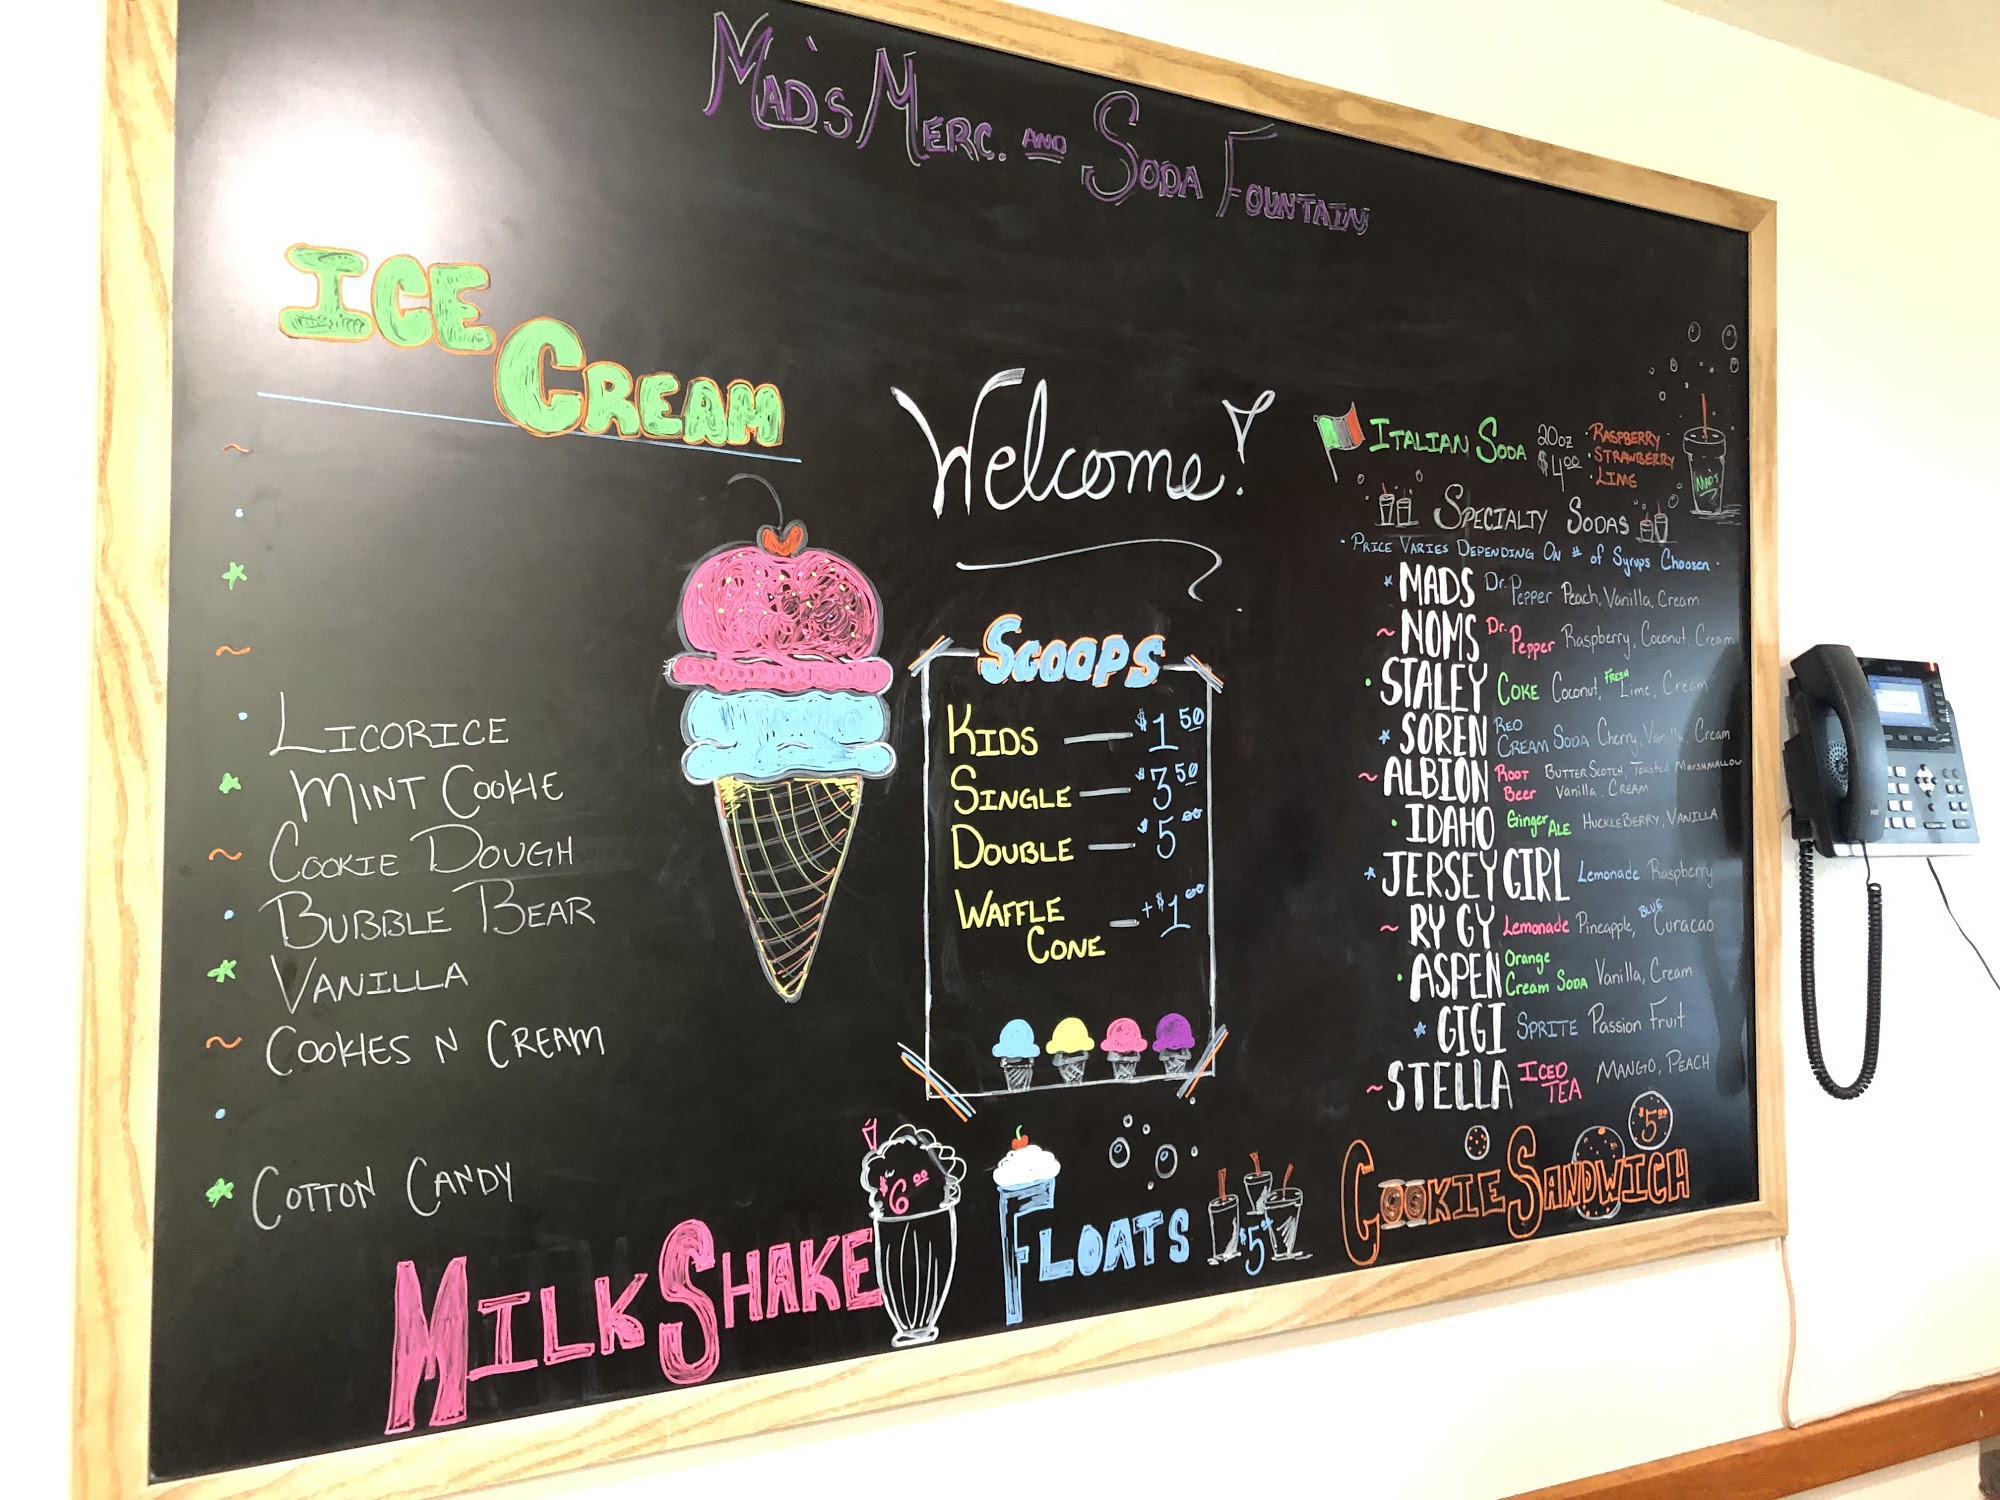 MAD'S MERC. AND SODA FOUNTAIN
ICE CREAM
LICORICE
MINT COOKIE
COOKIE DOUGH
BUBBLE BEAR
VANILLA
COOKIES N CREAM
COTTON CANDY
Welcome!
SCOOPS
KIDS — $1.50
SINGLE — $3.50
DOUBLE — $5.00
WAFFLE CONE — +$1.00
ITALIAN SODA 20oz $4.00
· RASPBERRY
· STRAWBERRY
· LIME
MAD'S
SPECIALTY SODAS
· PRICE VARIES DEPENDING ON # of Syrups Choosen ·
* MADS Dr. Pepper Peach, Vanilla, Cream
~ NOMS Dr. Pepper Raspberry, Coconut, Cream
· STALEY COKE Coconut, FRESH Lime, Cream
* SOREN RED CREAM SODA Cherry, Vanilla, Cream
~ ALBION ROOT Beer BUTTERSCOTCH, Toasted MARSHMALLOW Vanilla, CREAM
· IDAHO Ginger ALE HUCKLEBERRY, VANILLA
* JERSEY GIRL Lemonade Raspberry
~ RY GY Lemonade Pineapple, BLUE Curacao
· ASPEN Orange Cream SODA Vanilla, Cream
* GIGI SPRITE Passion Fruit
~ STELLA ICED TEA MANGO, PEACH
MILKSHAKE $6.00
FLOATS $5
COOKIE SANDWICH $5.00